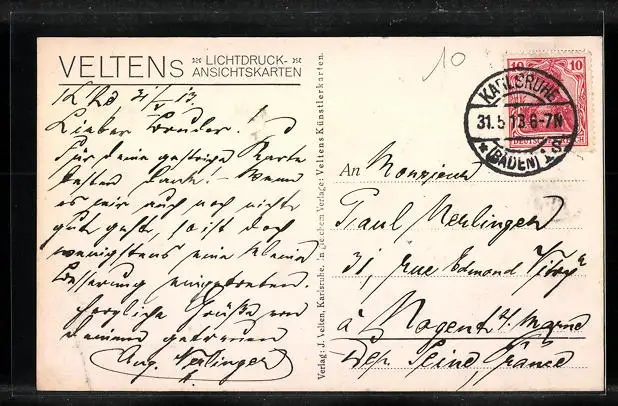 VELTENS LICHTDRUCK-
ANSICHTSKARTEN
31/V 13.
Lieber Bruder!
Für deine gestrige Karte
besten Dank! Wenn
es mir auch noch nicht
gut geht, so ist doch
wenigstens eine kleine
Besserung eingetreten.
Herzliche Grüße von
deinem getreuen
Aug. Nerlinger
Verlag: J. Velten, Karlsruhe. In gleichem Verlage: Veltens Künstlerkarten.
10
10 10
DEUTSCHES REICH
KARLSRUHE
31.5.13.6-7N
* (BADEN)
An Monsieur
Paul Nerlinger
31, rue Edmond Vitry
à Nogent s/ Marne
Dep. Seine, France